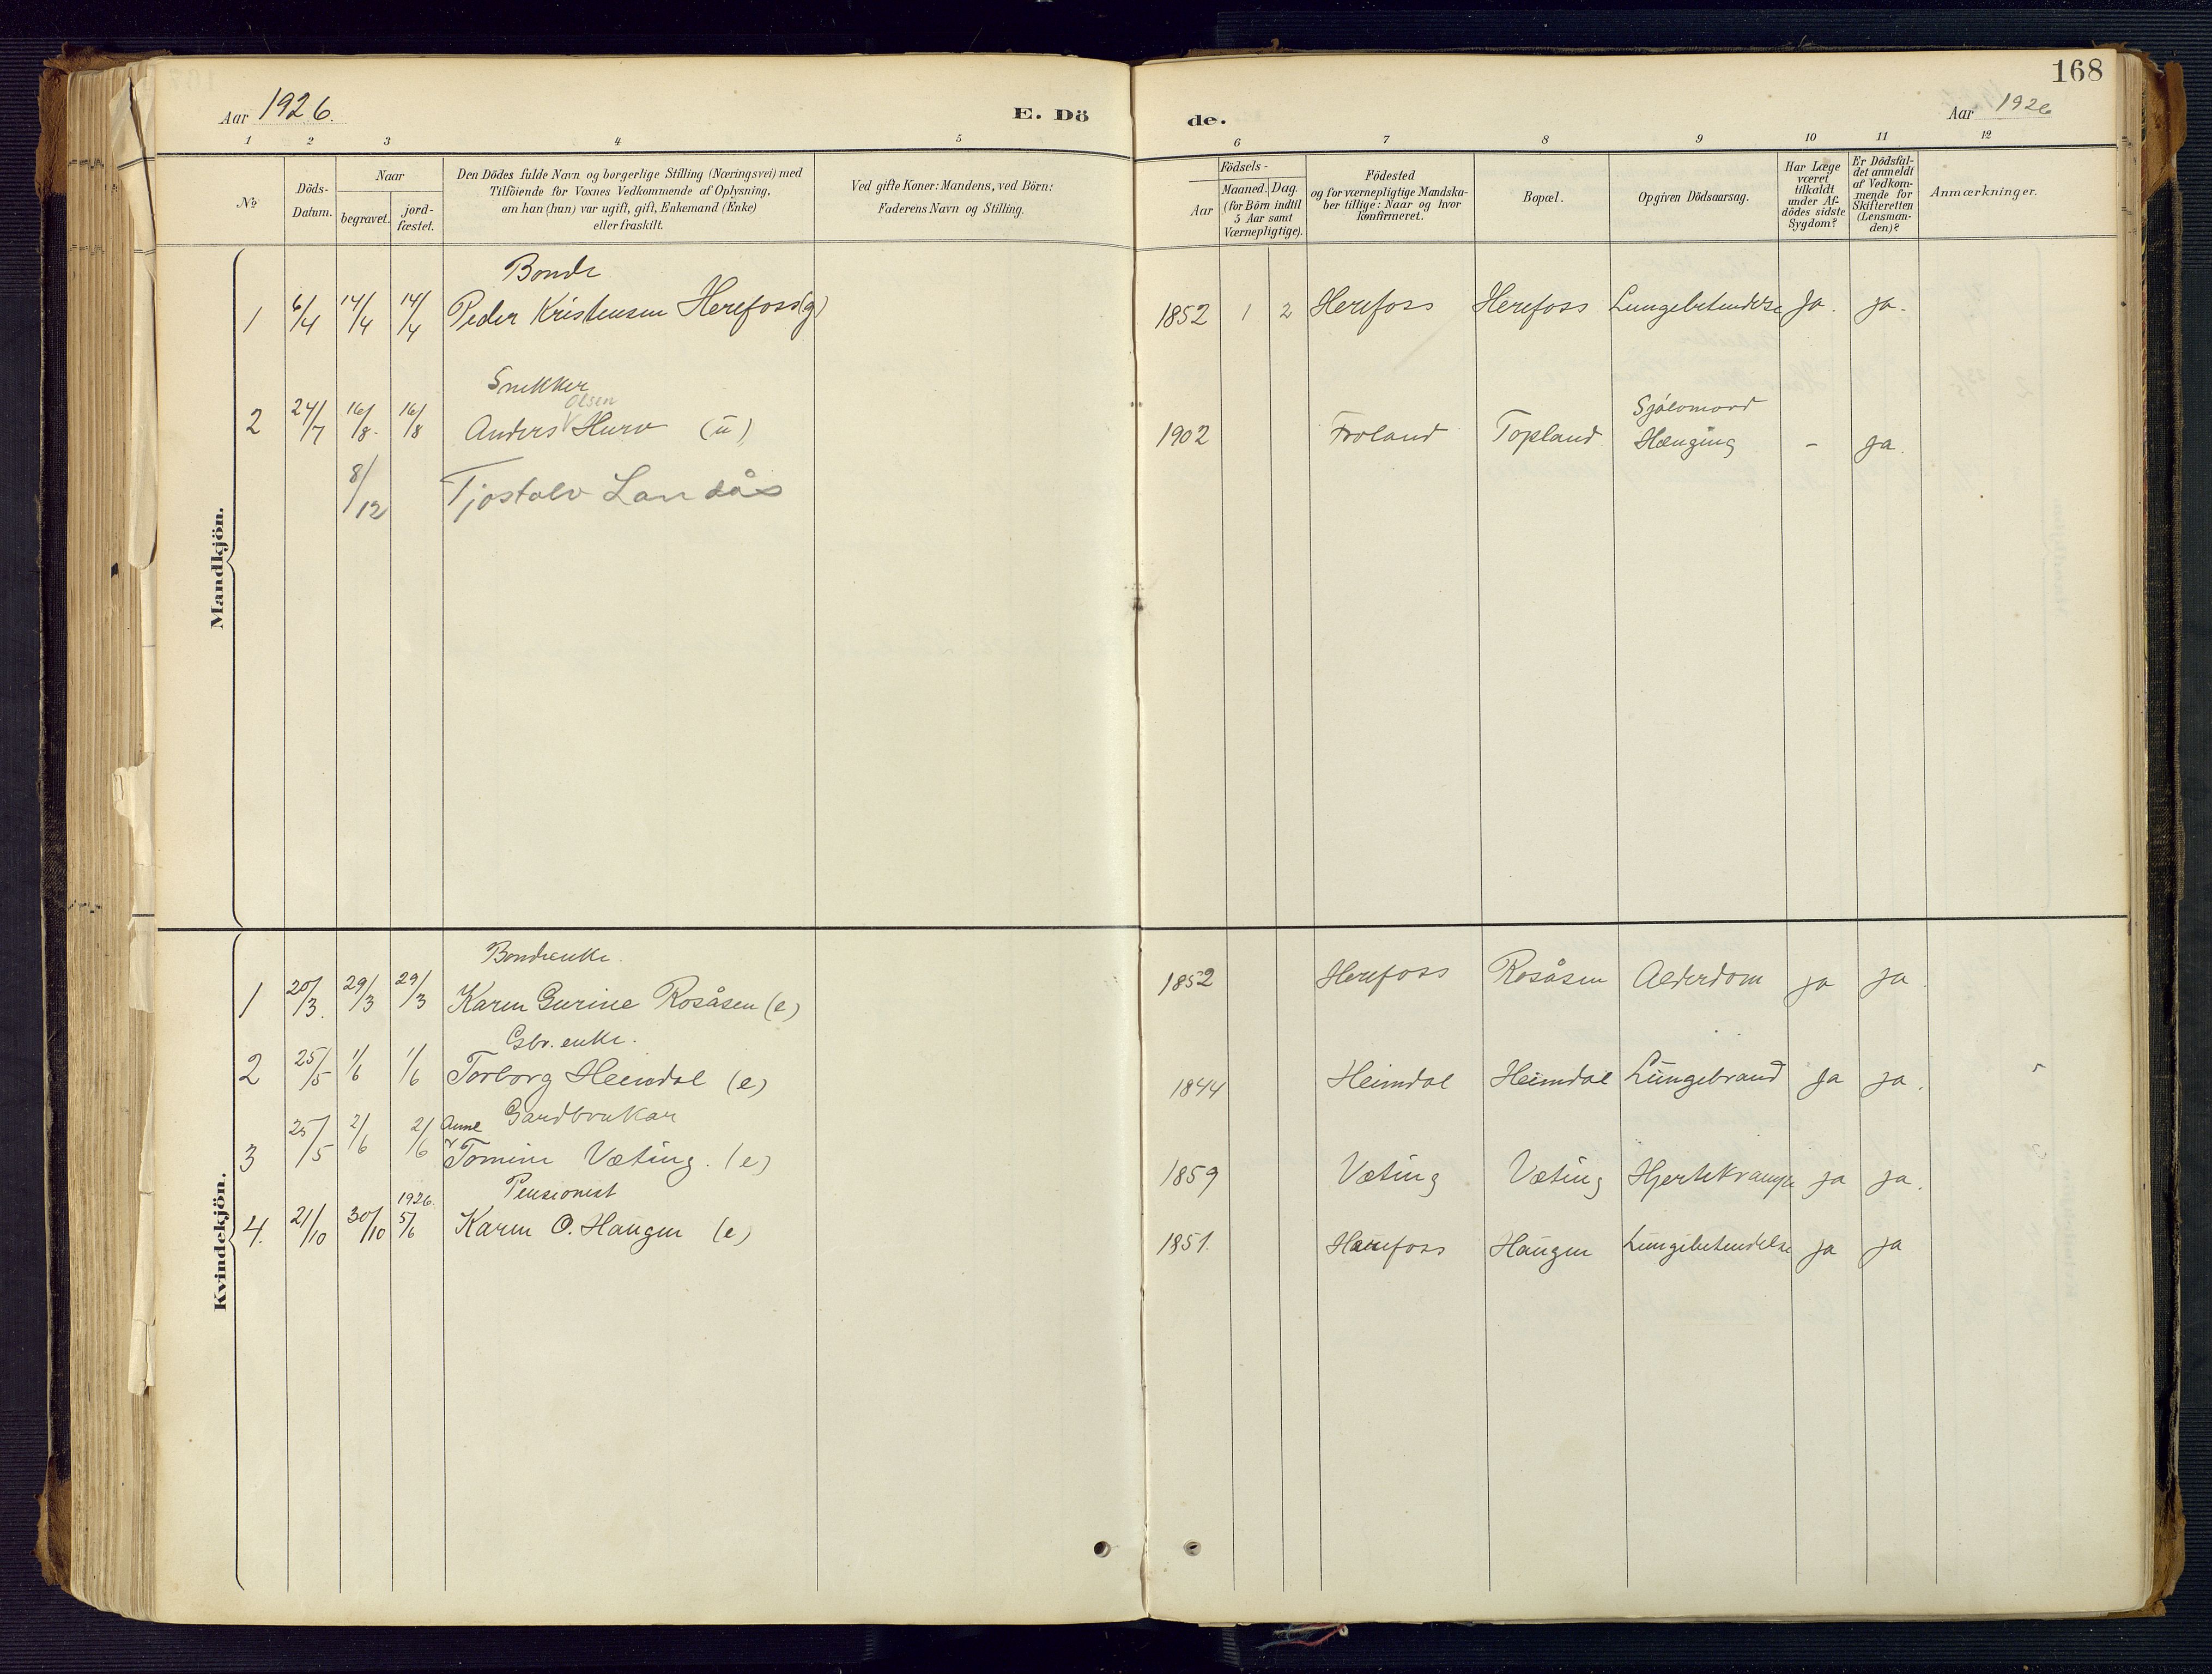 168
Aar 1926.
E. Dö
de.
Aar 1926
1 2 3 4 5 6 7 8 9 10 11 12
No
Döds-
Datum.
Naar
begravet.
jord-
fæstet.
Den Dödes fulde Navn og borgerlige Stilling (Næringsvei) med
Tilföiende for Voxnes Vedkommende af Oplysning,
om han (hun) var ugift, gift, Enkemand (Enke)
eller fraskilt.
Ved gifte Koner: Mandens, ved Börn:
Faderens Navn og Stilling.
Födsels-
Aar
Maaned. Dag.
(for Börn indtil
5 Aar samt
Værnepligtige).
Födested
og for værnepligtige Mandska-
ber tillige: Naar og hvor
konfirmeret.
Bopæl.
Opgiven Dödsaarsag.
Har Læge
været
tilkaldt
under Af-
dödes sidste
Sygdom?
Er Dödsfal-
det anmeldt
af Vedkom-
mende for
Skifteretten
(Lensman-
den)?
Anmærkninger.
Mandkjön.
Bonde
1 6/4 14/4 14/4 Peder Kristensen Herefoss (g) 1852 1 2 Herefoss Herefoss Lungebetendelse Ja. ja.
Snekker
Olsen
Sjølvmord
2 24/7 16/8. 16/8 Anders Hurv (u) 1902 Froland Topland Hænging - ja.
8/12 Tjostolv Landås
Kvindekjön.
Bondeenke.
1 20/3. 29/3 29/3 Karen Gurine Rosåsen (e) 1852 Herefoss Rosåsen Alderdom ja ja.
Gbr. enke.
2 25/5 1/6 1/6 Torborg Heimdal (e) 1844 Heimdal Heimdal Lungebrand Ja ja.
Anne Gardbrukar
3 25/5 2/6 2/6 Tomine Væting. (e) 1859 Væting Væting Hjertekrampe ja ja.
Pensionist
1926.
4. 21/10 30/10 5/6 Karen O. Haugen (e) 1851. Herefoss Haugen Lungebetendelse ja ja